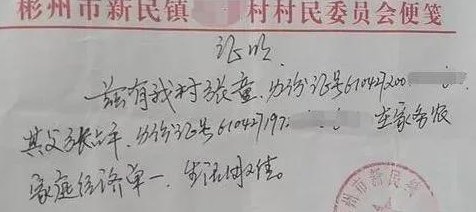 彬州市新民镇 村村民委员会便笺
证明
兹有我村张童，身份证号610427200
其父张占平，身份证号610427197 在家务农
家庭经济单一，生活困难。
州市新民